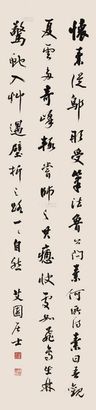 懷素從鄔彤受筆法魯公問素何所得素曰吾觀
夏雲多奇峰輒嘗師之其痛快處如飛鳥出林
驚蛇入艸遇壁拆之路一一自然
艾園居士